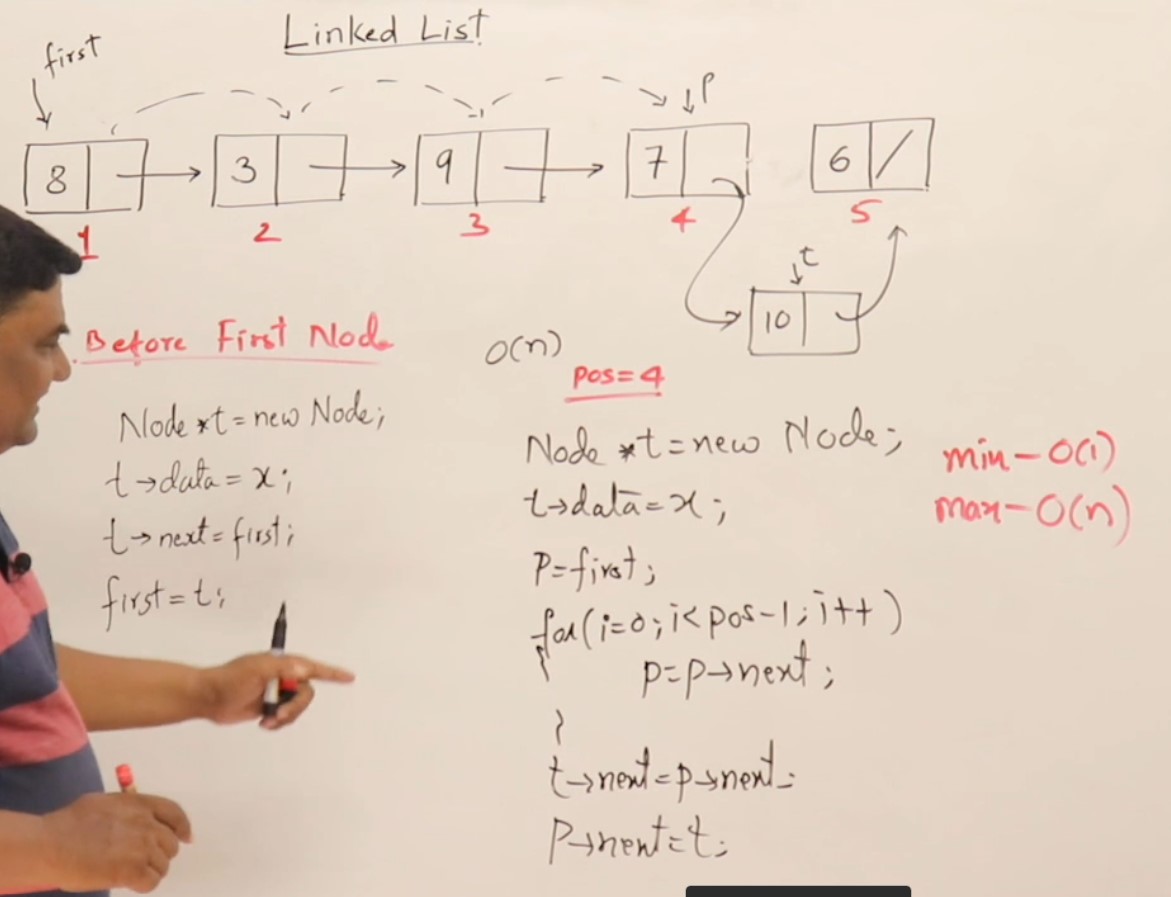 Linked List
first
p
8
3
9
7
6 /
1
2
3
4
5
t
10
Before First Node
Node *t = new Node;
t→data = x;
t→next = first;
first = t;
O(n)
Pos = 4
Node *t = new Node;
t→data = x;
P = first;
for(i=0; i<pos-1; i++)
{
p = p→next;
}
t→next = p→next;
P→next = t;
min - O(1)
max - O(n)